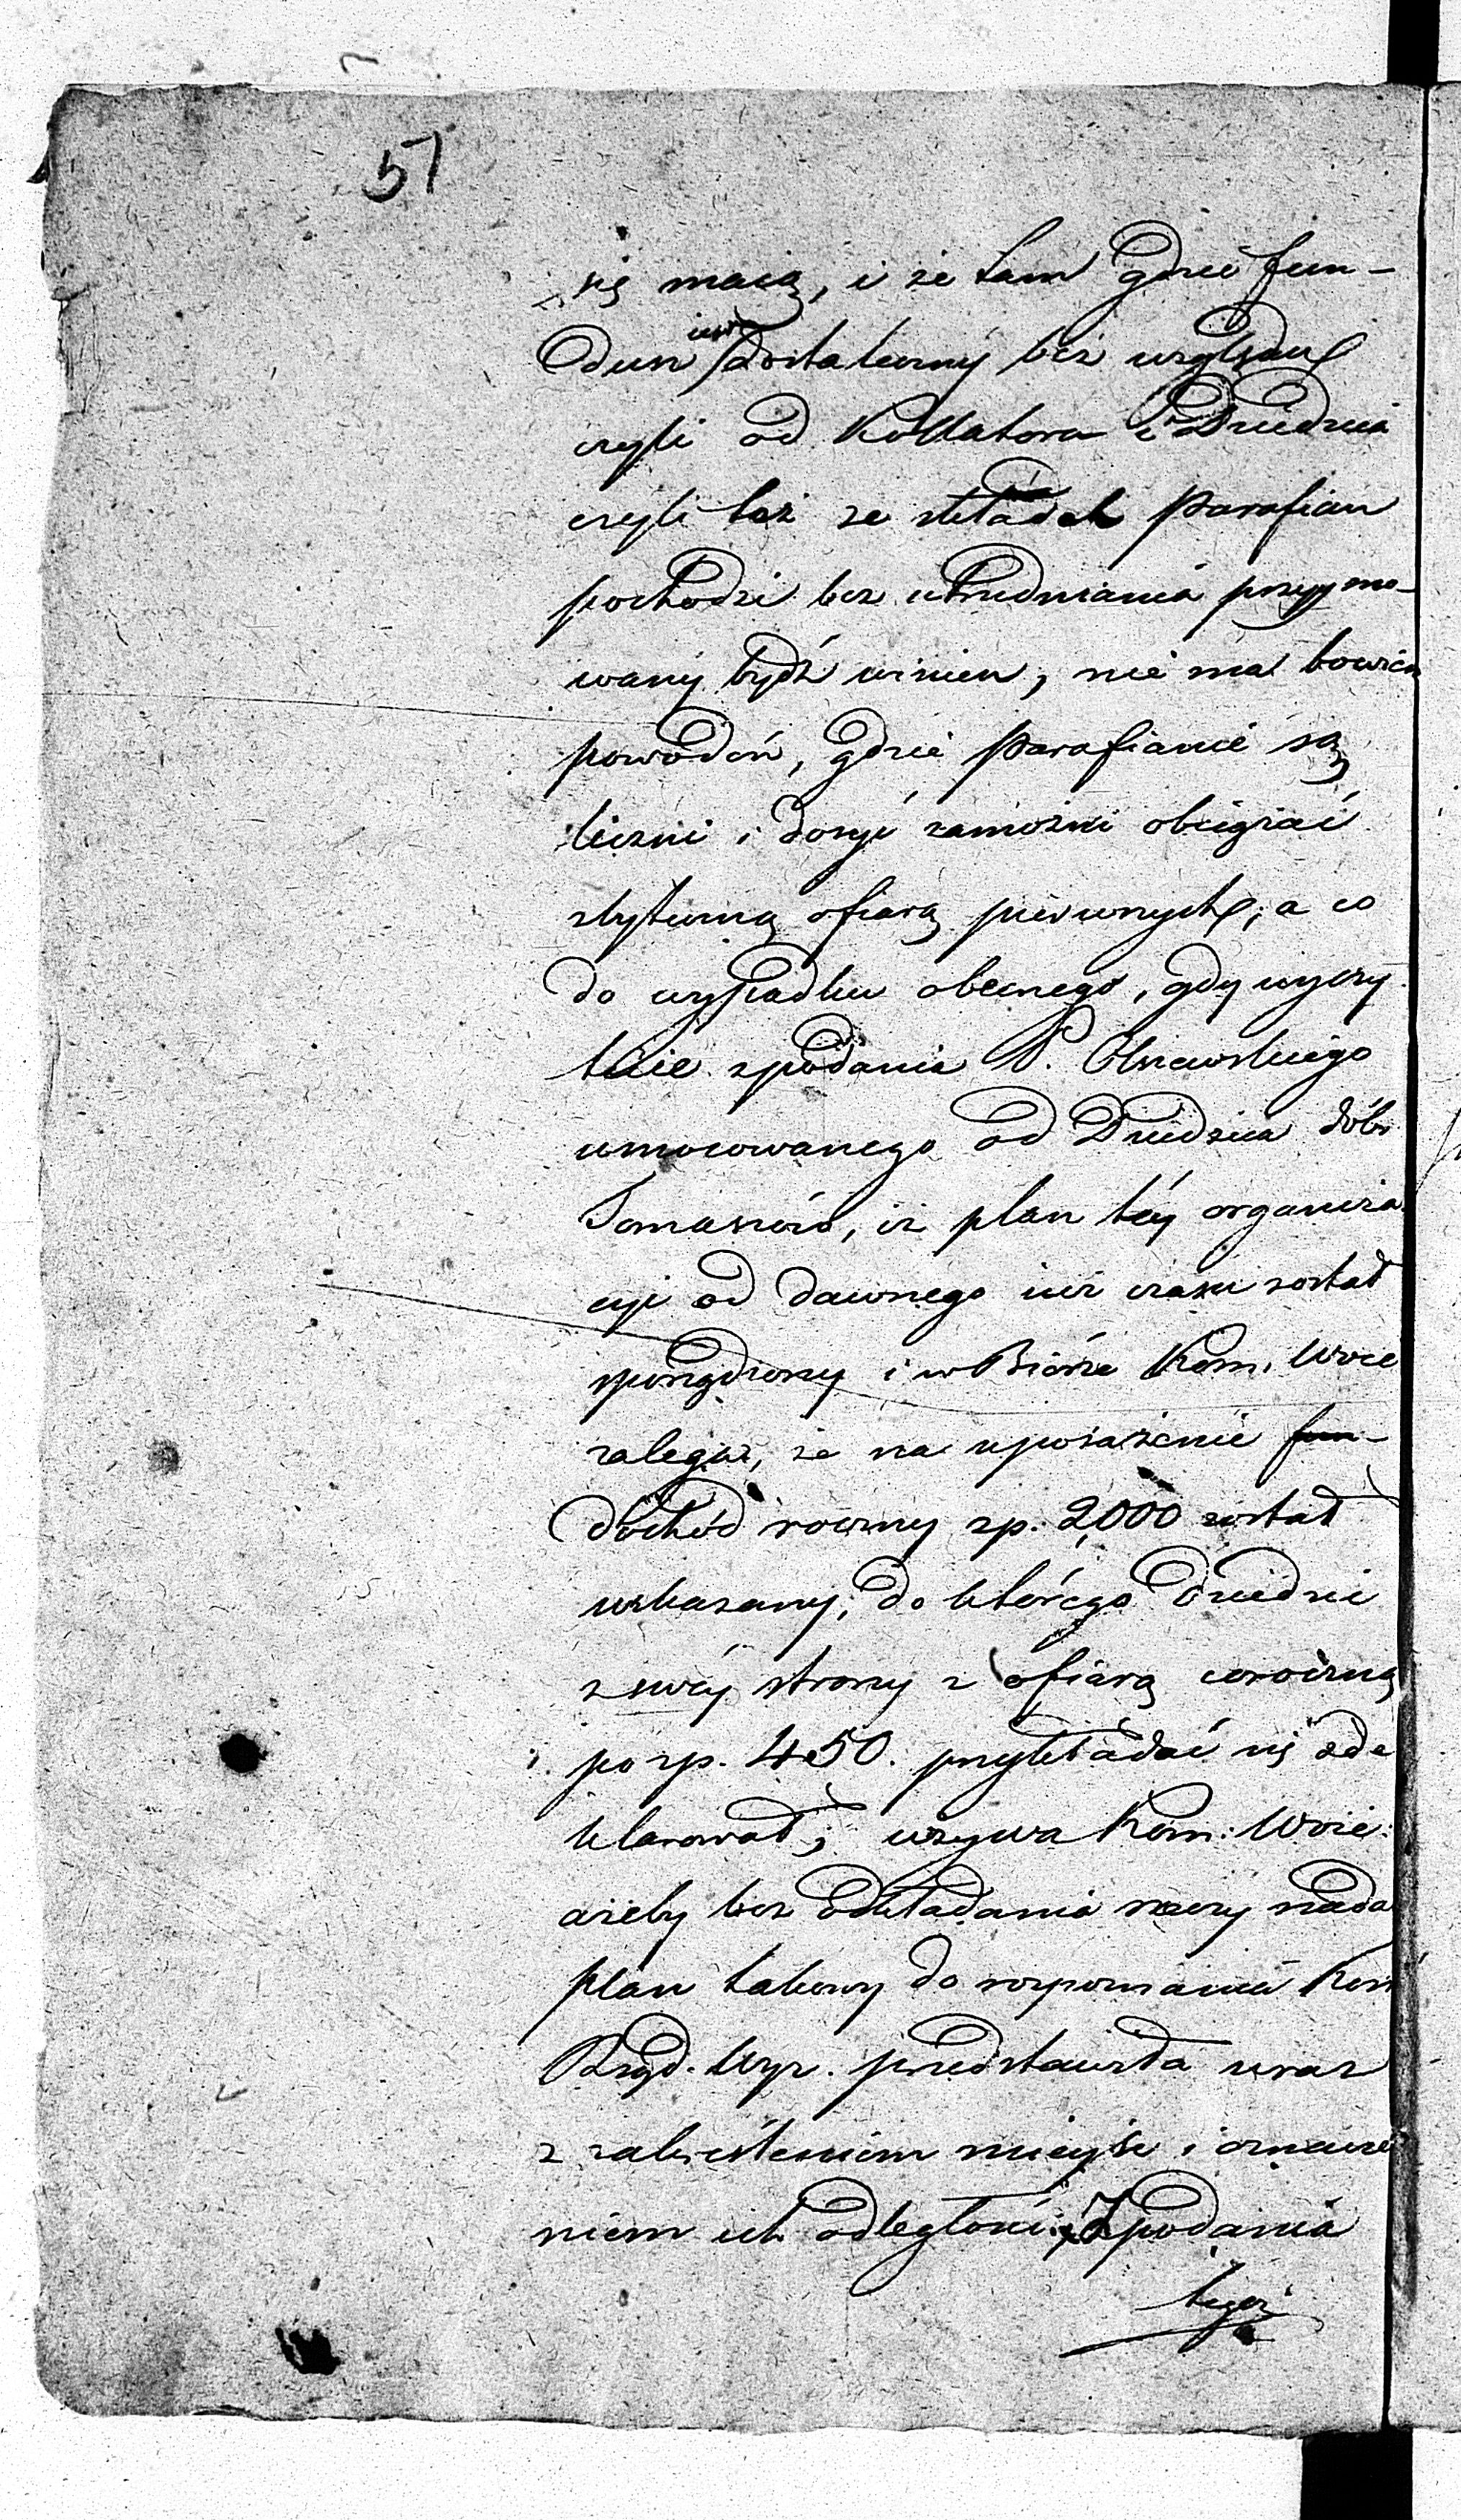 51
się maią, i że tam gdzie fun-
dusz iest dostateczny bez względu
czyli od Kollatora i Dziedzica
czyli też ze składek Parafian
pochodzi bez utrudniania przyymo-
wany bydź winien, nie ma bowiem
powodów, gdzie Parafianie są
liczni i dosyć zamożni obciążać
zbyteczną ofiarą pierwszych; a co
do wypadku obecnego, gdy wyczy
tuie z podania P. Olszewskiego
umocowanego od Dziedzica dóbr
Tomaszów, iż plan téy organiza
cyi od dawnego iuż czasu został
sporządzony i w Biórze Kom. Woie
zalega, że na uposażenie fun-
dochód roczny zp. 2,000 został
wskazany, do którego Dziedzic
z swéy strony z ofiarą coroczną
po zp. 450. przykładać się zde
klarował; wzywa Kom: Woie:
ażeby bez odkładania rzeczy nada
plan takowy do rozpoznania Kom
Rząd. Wyz. przedstawiła wraz
z zakreśleniem mieysc i oznacze
niem ich odległości; Z podania
tegoż